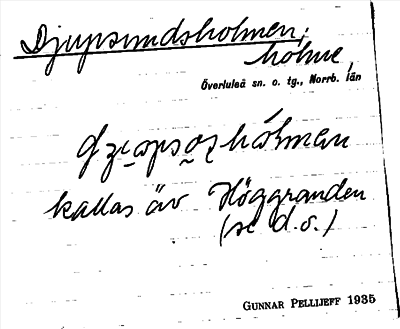 Djupsundsholmen,
holme,
Överluleå sn. o. tg., Norrb. län
kallas äv Höggranden
(se d.o.)
GUNNAR PELLIJEFF 1935